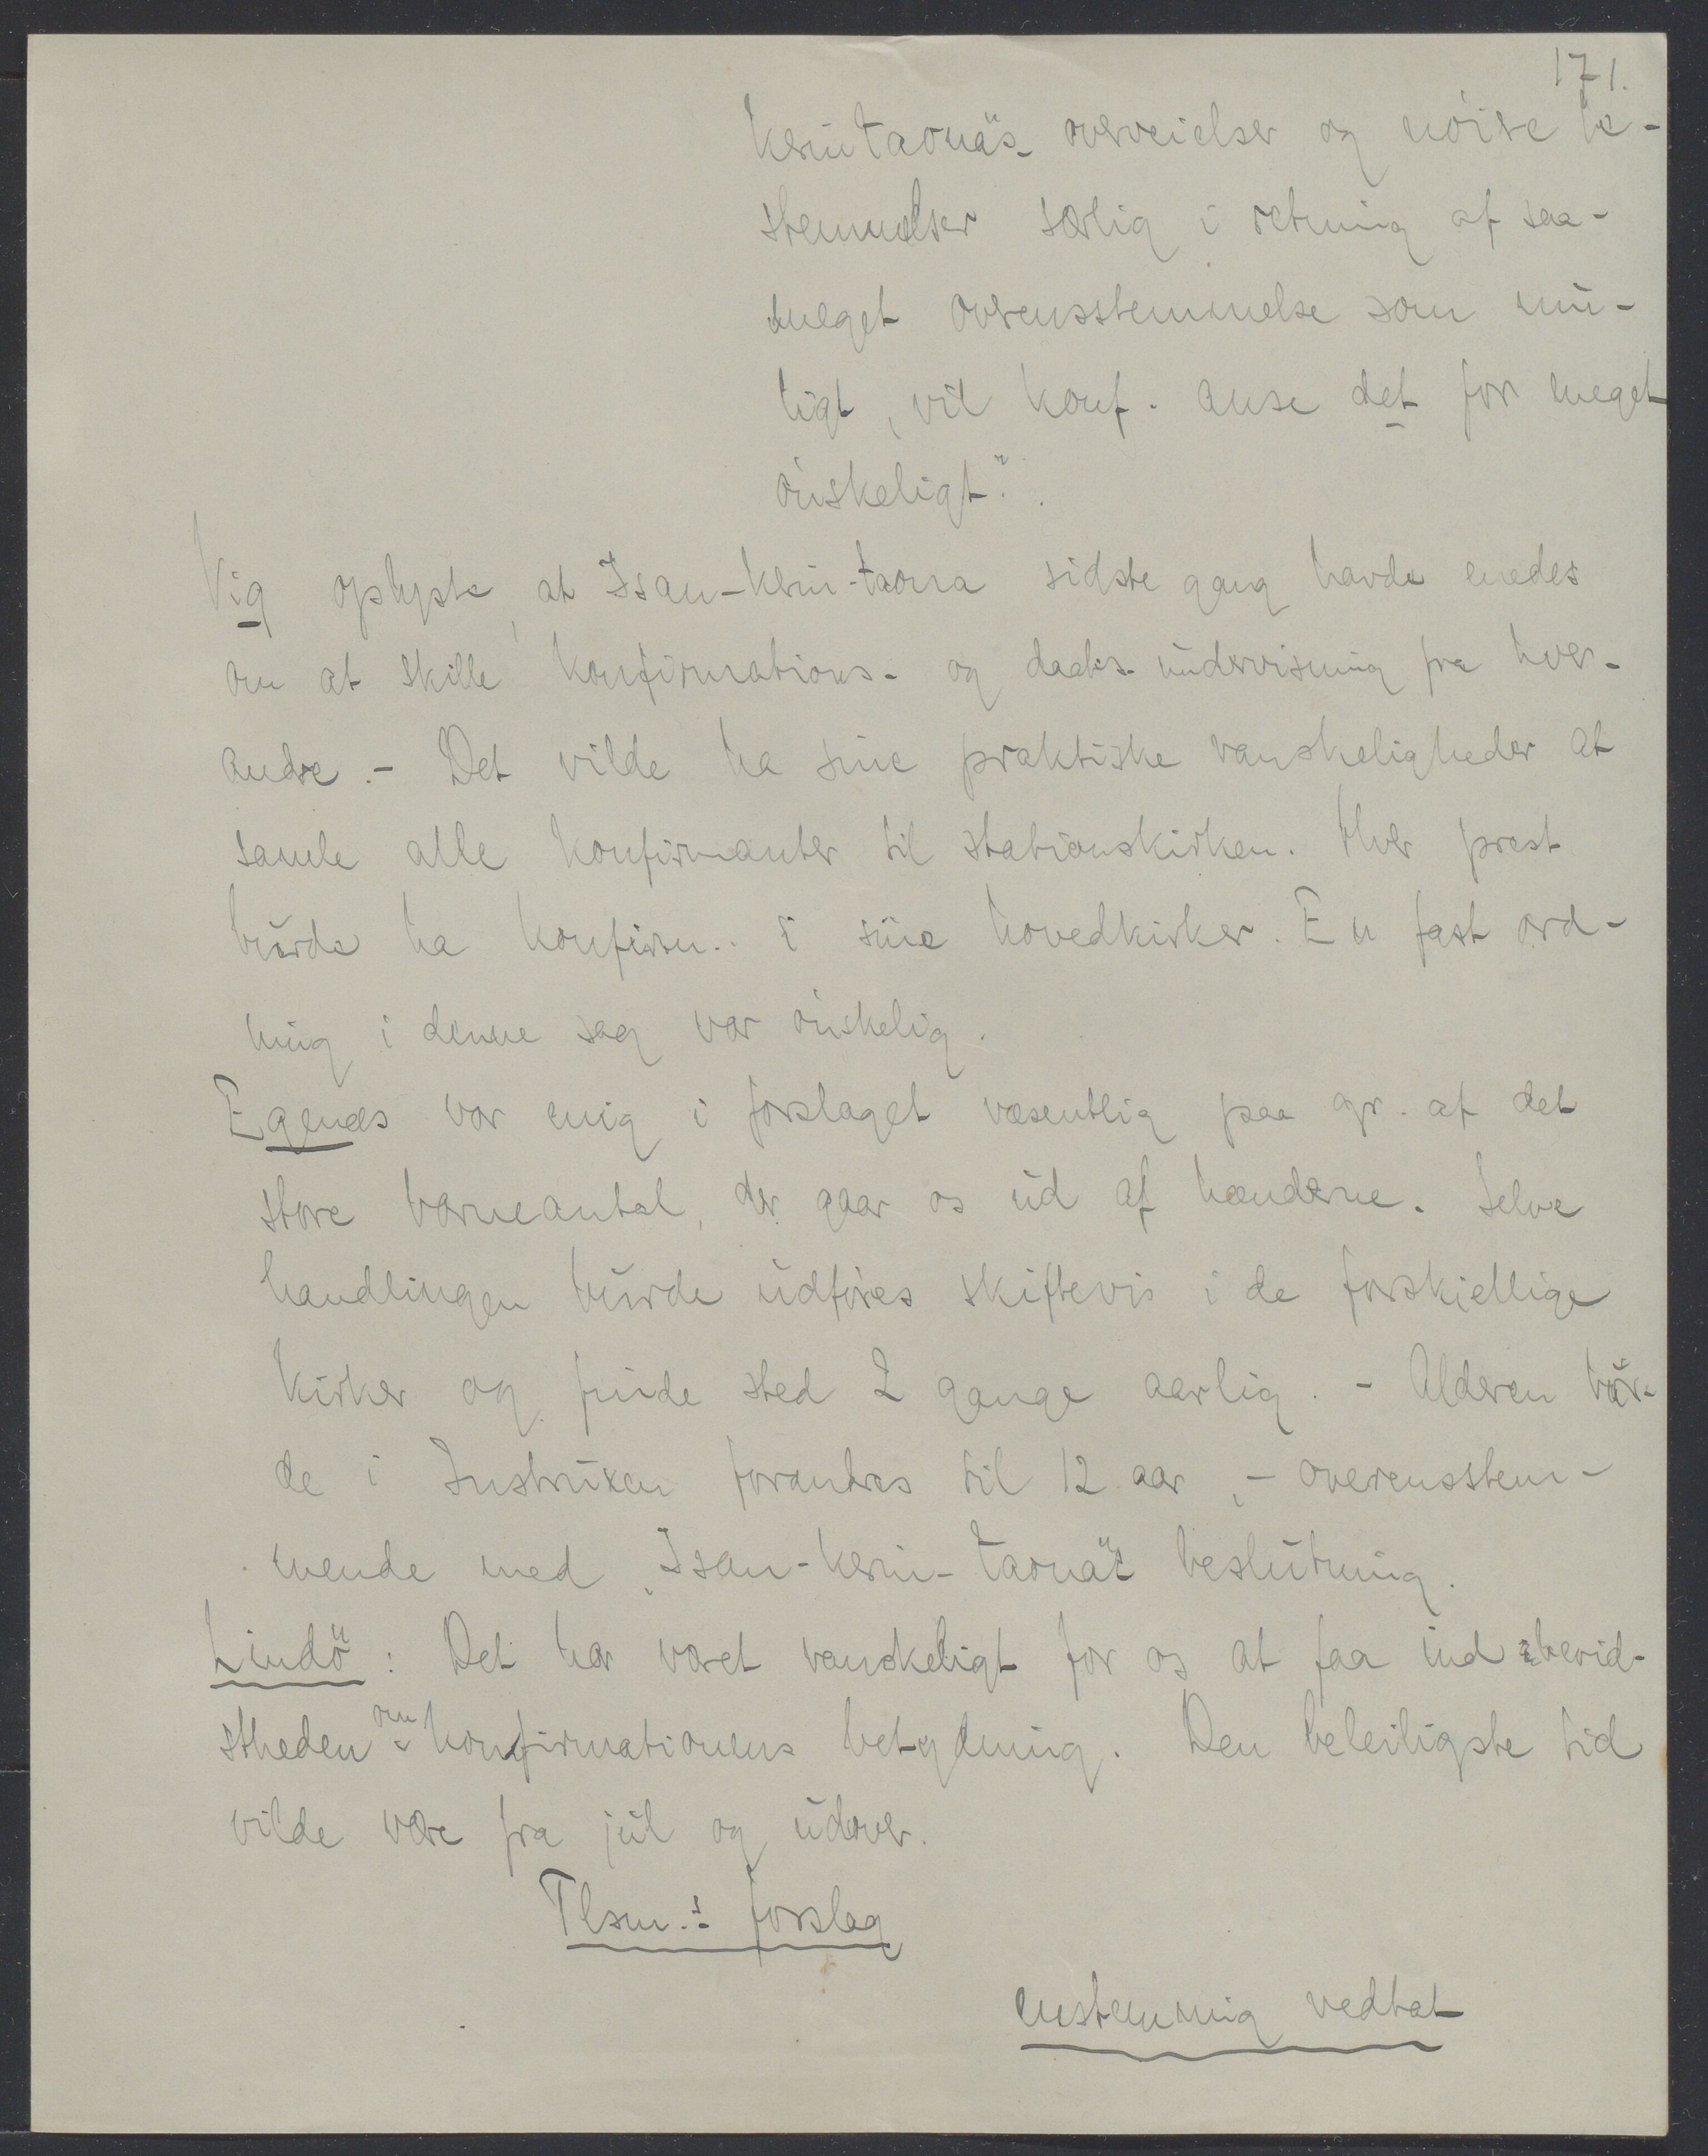 171.
kerintaona's overveielser og nöiere be-
stemmelser særlig i retning af saa-
meget overensstemmelse som mu-
ligt, vil konf. anse det for meget
önskeligt".
Vig oplyste, at Isan-kerin-taona sidste gang havde enedes
om at skille konfirmations- og daabs-undervisning fra hver-
andre. - Det vilde ha sine praktiske vanskeligheder at
samle alle konfirmanter til stationskirken. Hver prest
burde ha konfirm.. i sine hovedkirker. En fast ord-
ning i denne sag var önskelig.
Egenæs var enig i forslaget væsentlig paa gr. af det
store barneantal, der gaar os ud af hænderne. Selve
handlingen burde udföres skiftevis i de forskjellige
kirker og finde sted 2 gange aarlig. - Alderen bur-
de i Instruxen forandres til 12 aar, - overensstem-
mende med "Isan-kerin-taona"s beslutning.
Lindö: Det har været vanskeligt for os at faa ind i bevid-
stheden om konfirmationens betydning. Den beleiligste tid
vilde være fra jul og udover.
Tlsm.s forslag
enstemmig vedtat